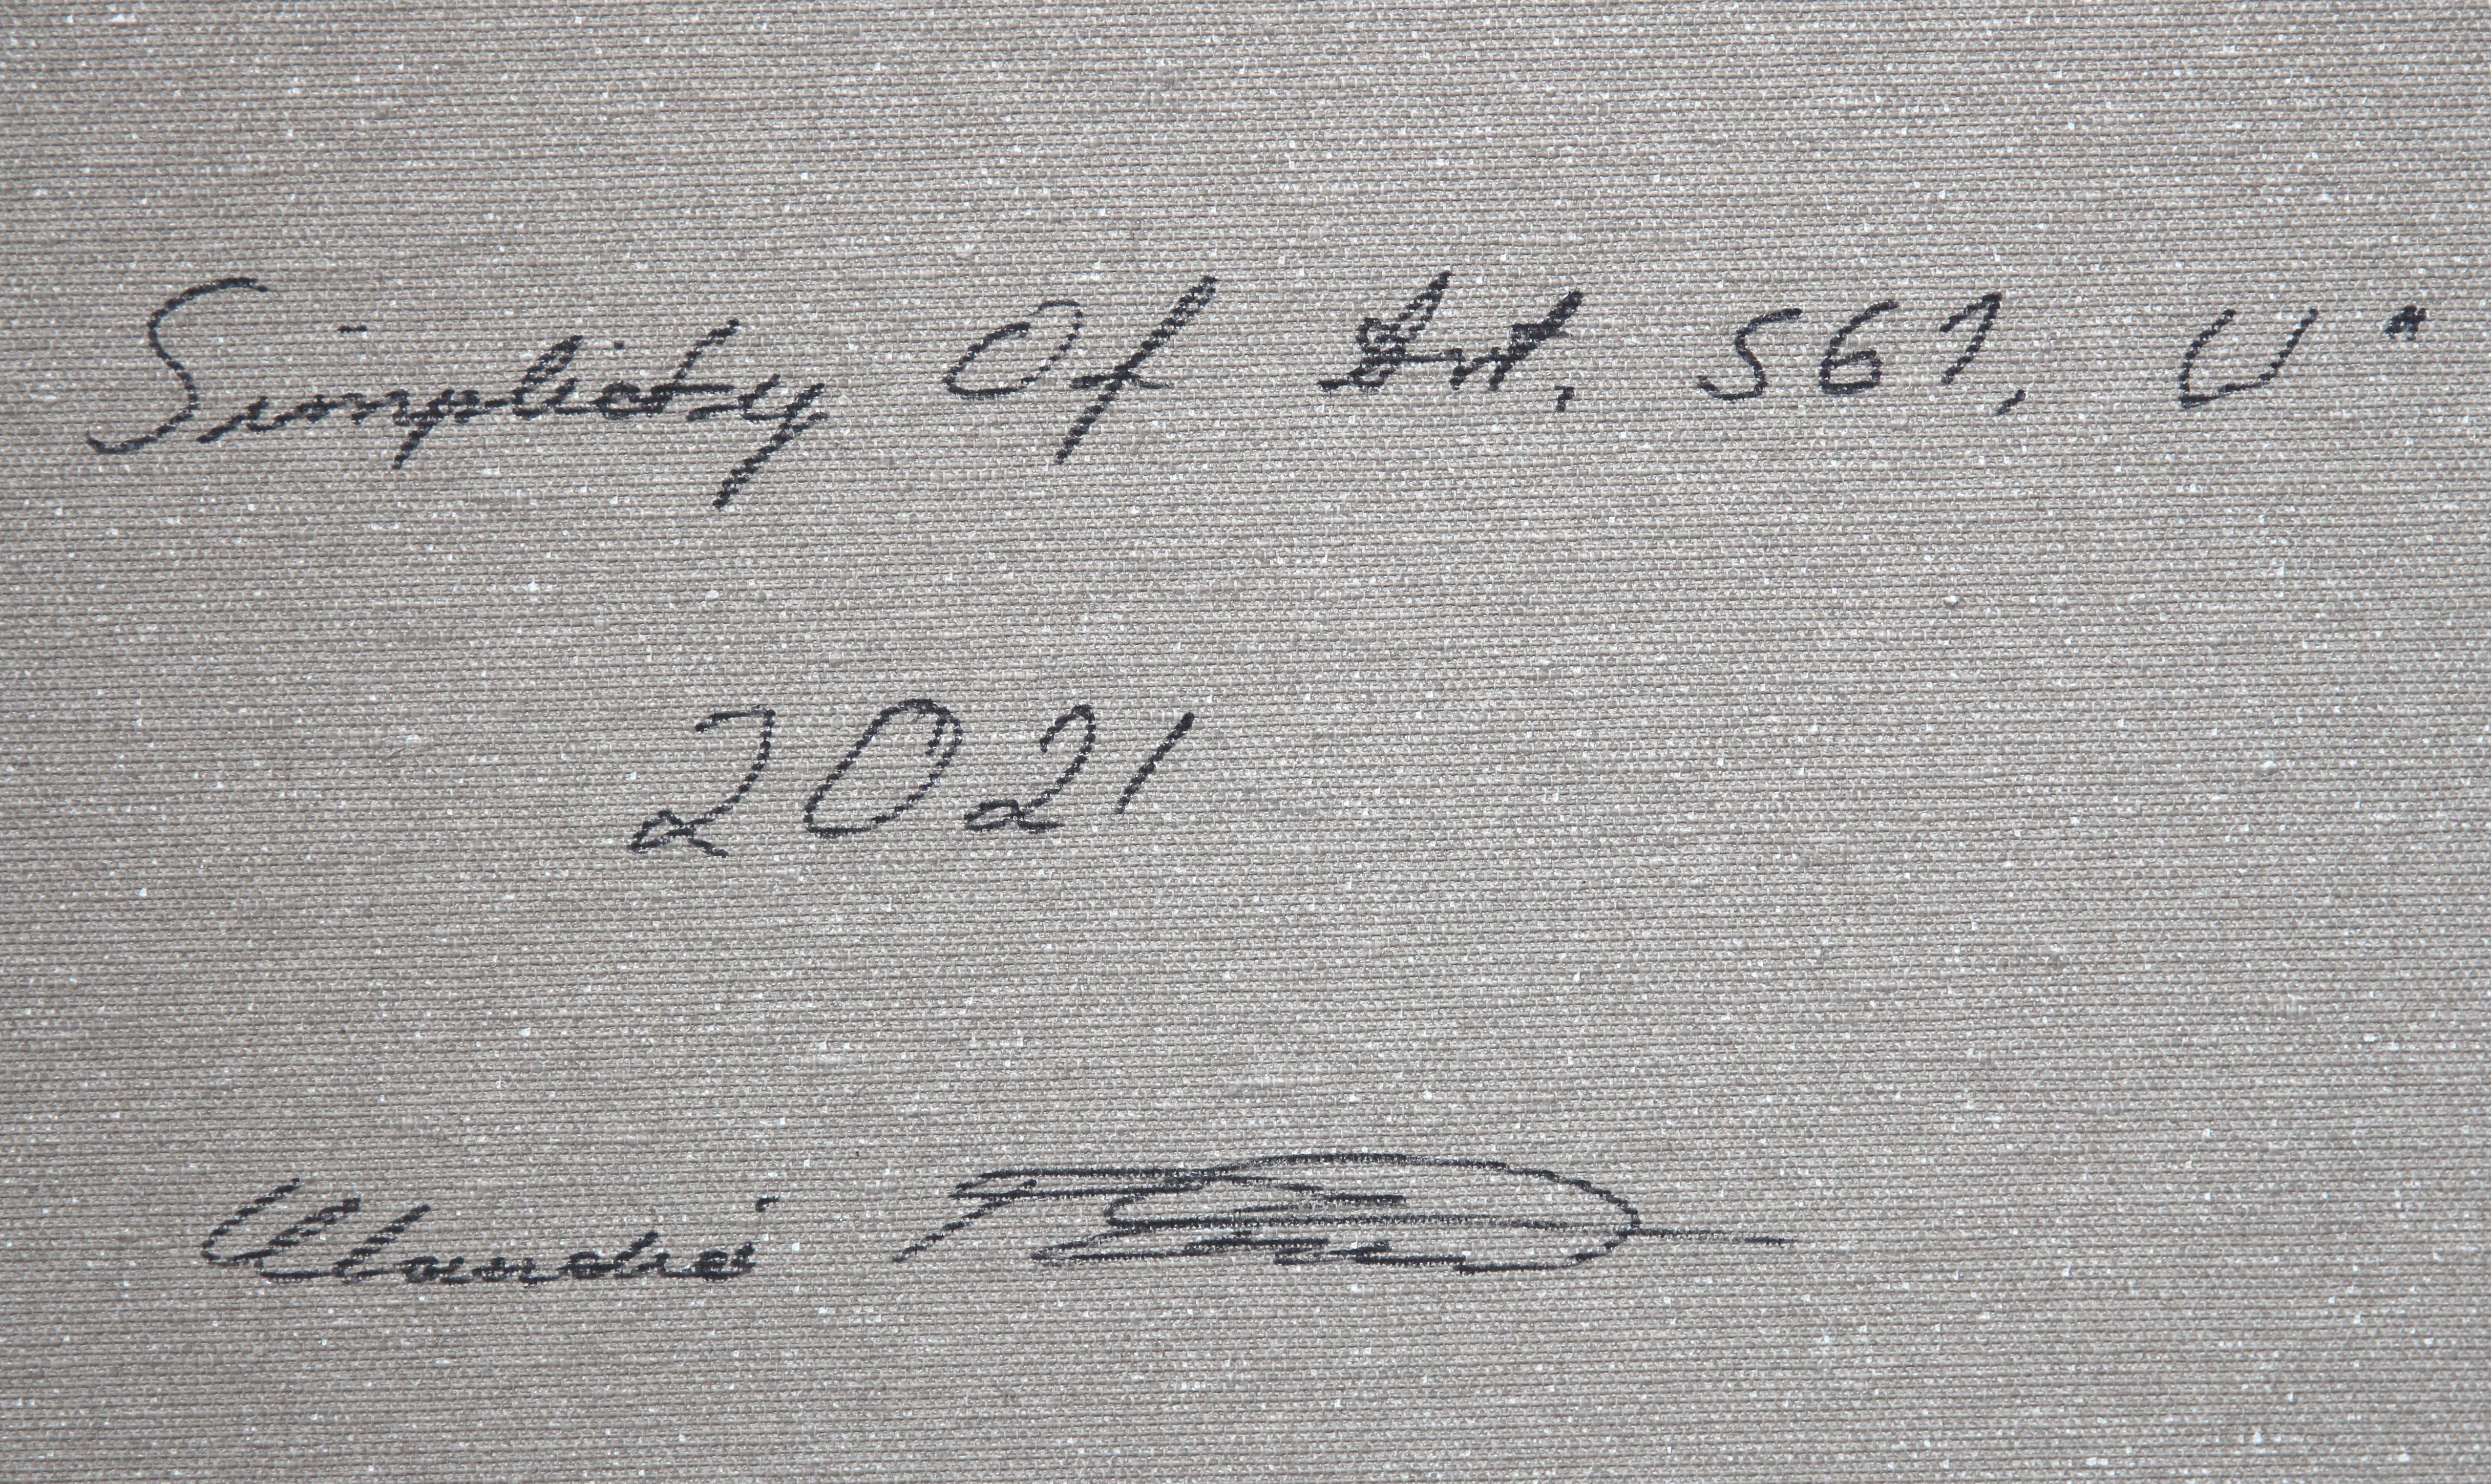 Simplicity Of Art, 567, U"
2021
Claudia